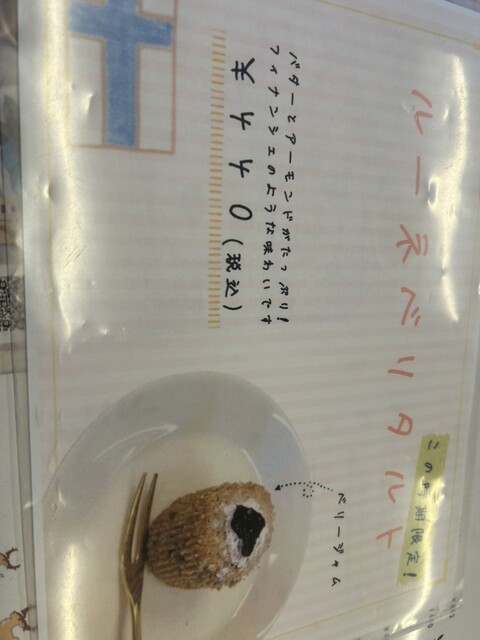 ルーネベリタルト
この時期限定!
バターとアーモンドがたっぷり!
フィナンシェのような味わいです
¥440(税込)
ベリージャム